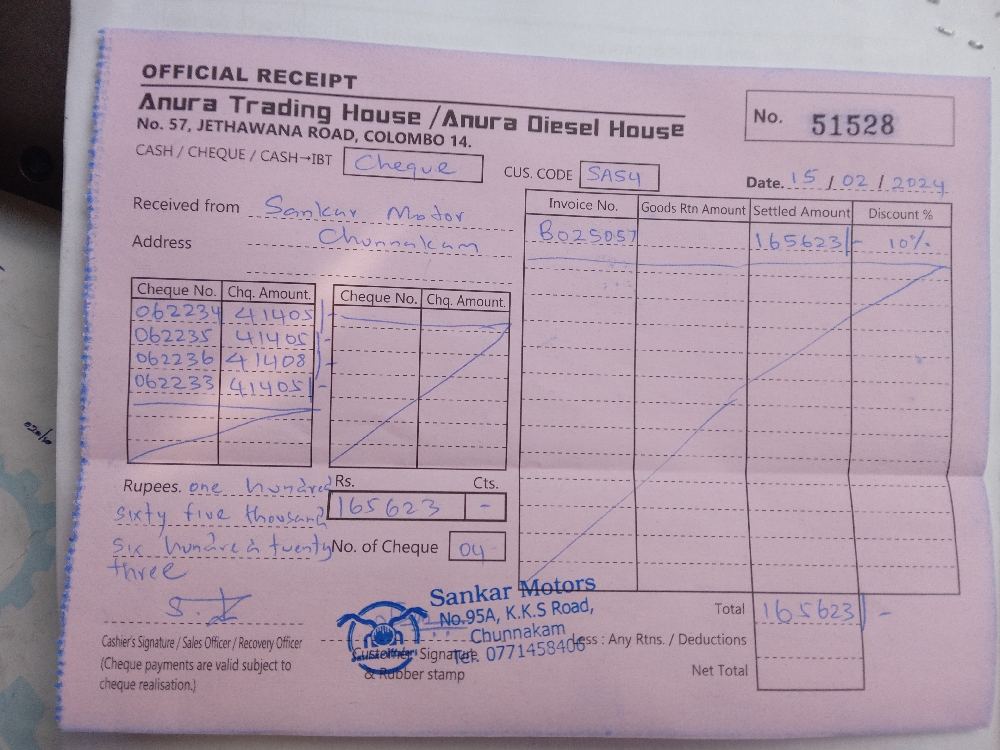 OFFICIAL RECEIPT
Anura Trading House / Anura Diesel House
No. 57, JETHAWANA ROAD, COLOMBO 14.
No. 51528
CASH / CHEQUE / CASH→IBT Cheque
CUS. CODE SA54
Date. 15 / 02 / 2024
Received from Sankar Motor
Address Chunnakam
Invoice No. Goods Rtn Amount Settled Amount Discount %
B025057 165623/- 10%
Cheque No. Chq. Amount. Cheque No. Chq. Amount.
062234 41405/-
062235 41405/-
062236 41408/-
062233 41405/-
Rupees. one hundred
sixty five thousand
six hundred twenty
three
Rs. Cts.
165623 -
No. of Cheque 04
Cashier's Signature / Sales Officer / Recovery Officer
(Cheque payments are valid subject to
cheque realisation.)
Sankar Motors
No.95A, K.K.S Road,
Chunnakam
Tel: 0771458406
Customer Signature
& Rubber stamp
Total 165623/-
Less : Any Rtns. / Deductions
Net Total